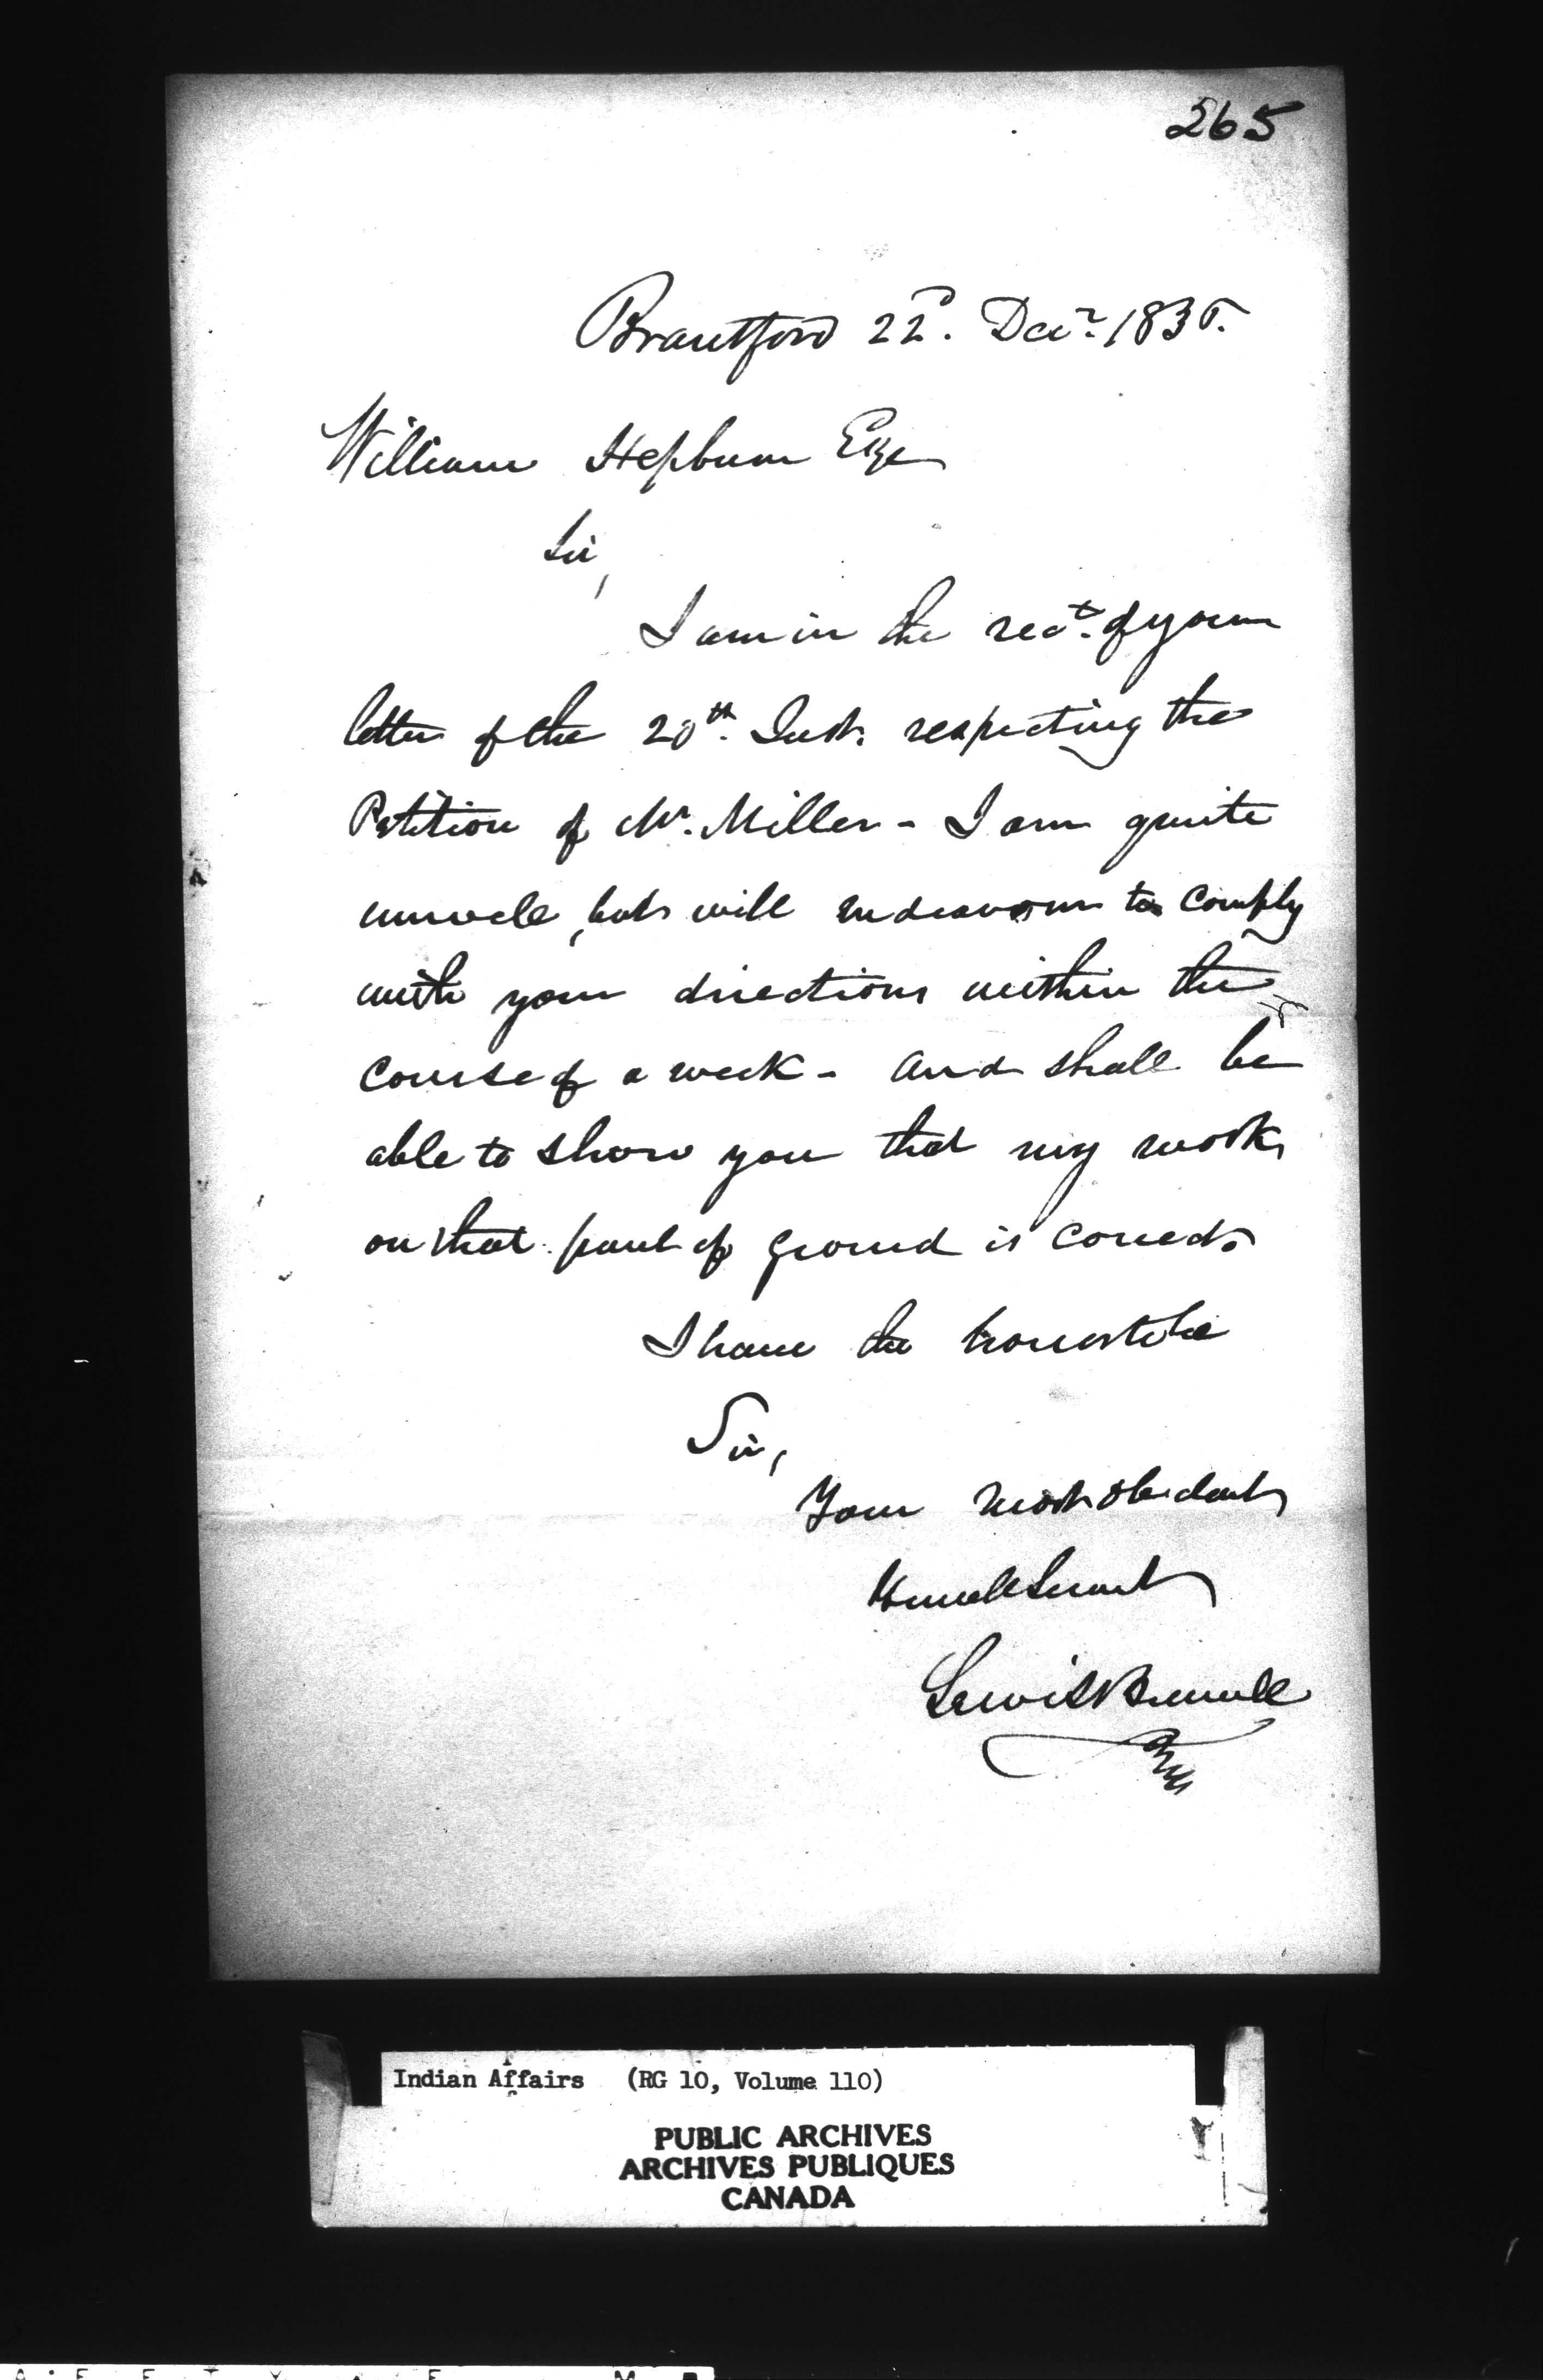 265
Brantford 22d. Decr. 1835.
William Hepburn Esqr
Sir,
I am in the rect. of your
letter of the 20th. Inst. respecting the
Petition of Mr. Miller - I am quite
unwell, but will endeavour to comply
with your directions within the
course of a week - and shall be
able to show you that my work
on that part of ground is correct.
I have the honor to be
Sir,
Your most obedient
Humble Servant
Lewis Burwell
Indian Affairs (RG 10, Volume 110)
PUBLIC ARCHIVES
ARCHIVES PUBLIQUES
CANADA